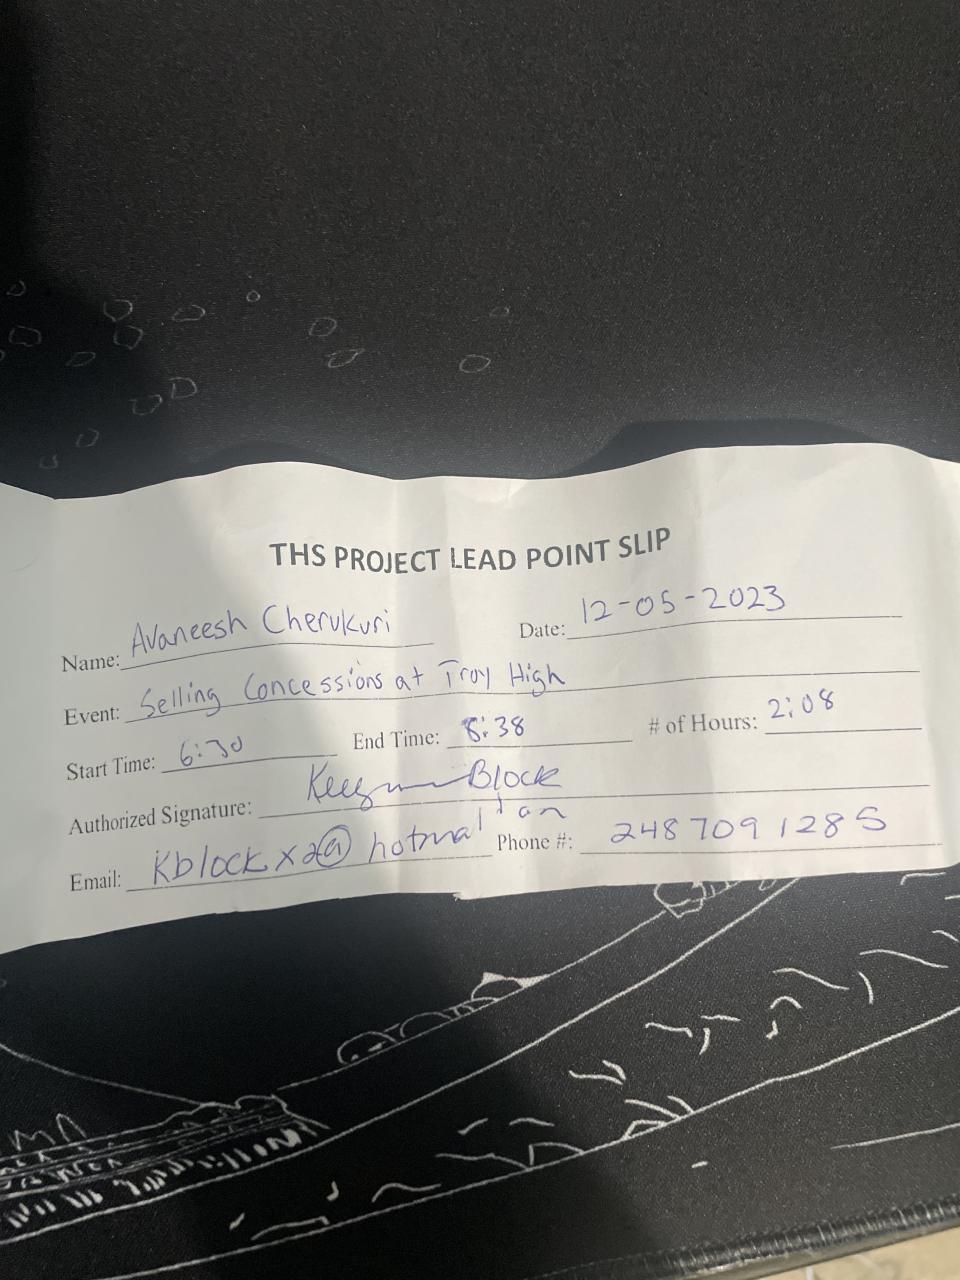 THS PROJECT LEAD POINT SLIP
Name: Avaneesh Cherukuri Date: 12-05-2023
Event: Selling Concessions at Troy High
Start Time: 6:30 End Time: 8:38 # of Hours: 2:08
Authorized Signature: Block
Email: Kblockx2@ Phone #: 248 709 1285